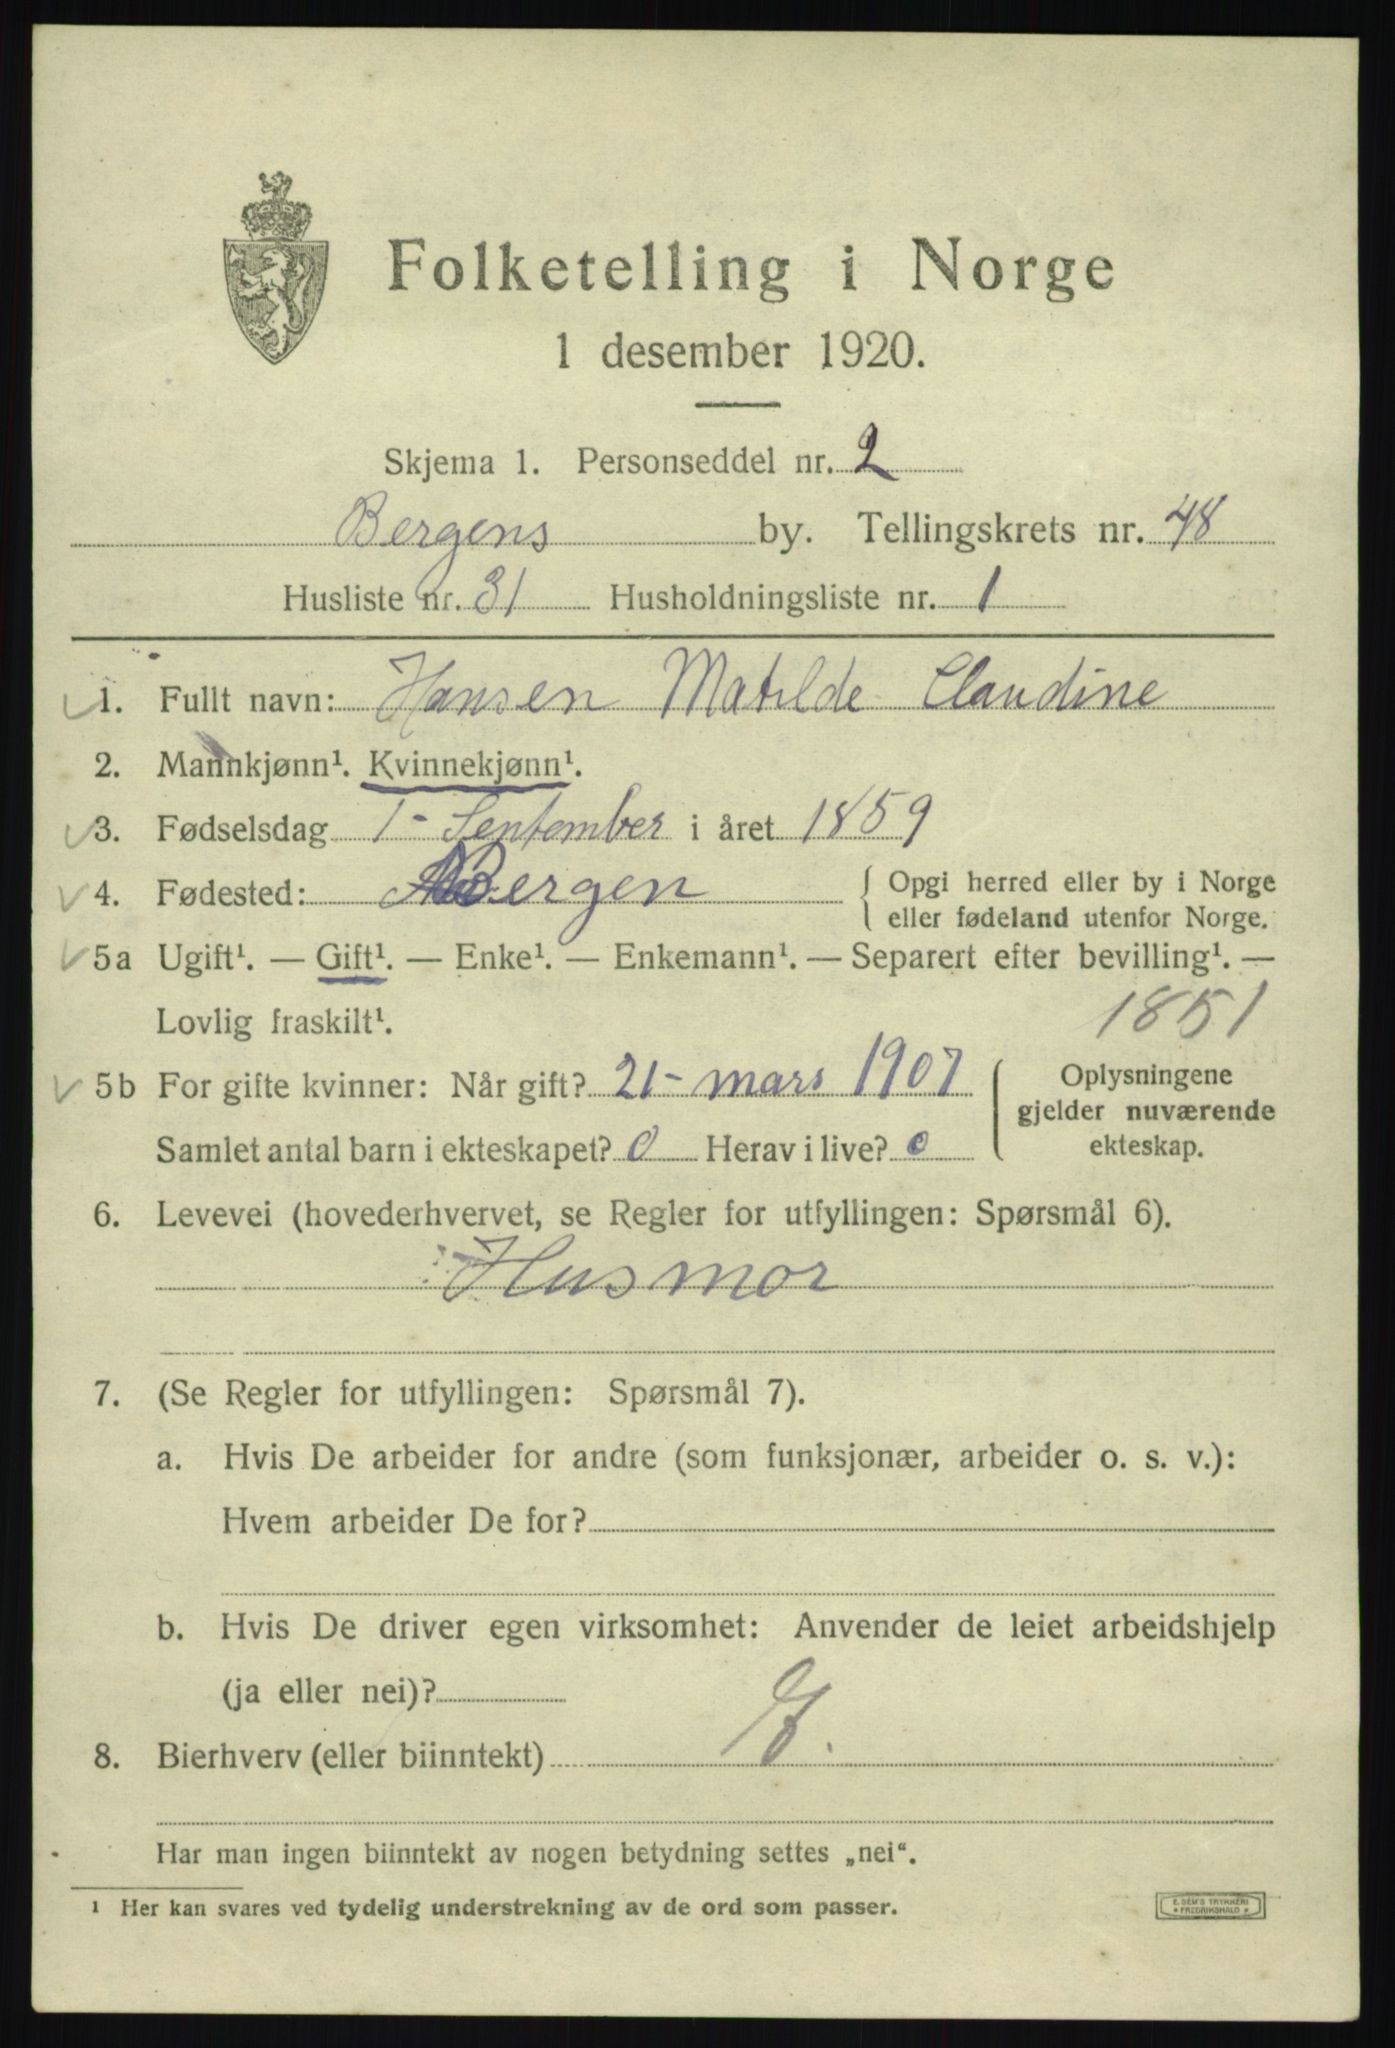 Folketelling i Norge
1 desember 1920.
Skjema 1. Personseddel nr. 2
Bergens by. Tellingskrets nr. 48
Husliste nr. 31 Husholdningsliste nr. 1
1. Fullt navn: Hansen Matilde Claudine
2. Mannkjønn¹. Kvinnekjønn¹.
3. Fødselsdag 1 - September i året 1859
4. Fødested: Bergen { Opgi herred eller by i Norge
eller fødeland utenfor Norge.
5a Ugift¹. — Gift¹. — Enke¹. — Enkemann¹. — Separert efter bevilling¹. —
Lovlig fraskilt¹. 1851
5b For gifte kvinner: Når gift? 21 - mars 1907
Samlet antal barn i ekteskapet? 0 Herav i live? 0
Oplysningene
gjelder nuværende
ekteskap.
6. Levevei (hovederhvervet, se Regler for utfyllingen: Spørsmål 6).
Husmor
7. (Se Regler for utfyllingen: Spørsmål 7).
a. Hvis De arbeider for andre (som funksjonær, arbeider o. s. v.):
Hvem arbeider De for?
b. Hvis De driver egen virksomhet: Anvender de leiet arbeidshjelp
(ja eller nei)?
8. Bierhverv (eller biinntekt)
Har man ingen biinntekt av nogen betydning settes „nei“.
¹ Her kan svares ved tydelig understrekning av de ord som passer.
E. SEM'S TRYKKERI
* FREDRIKSHALD *